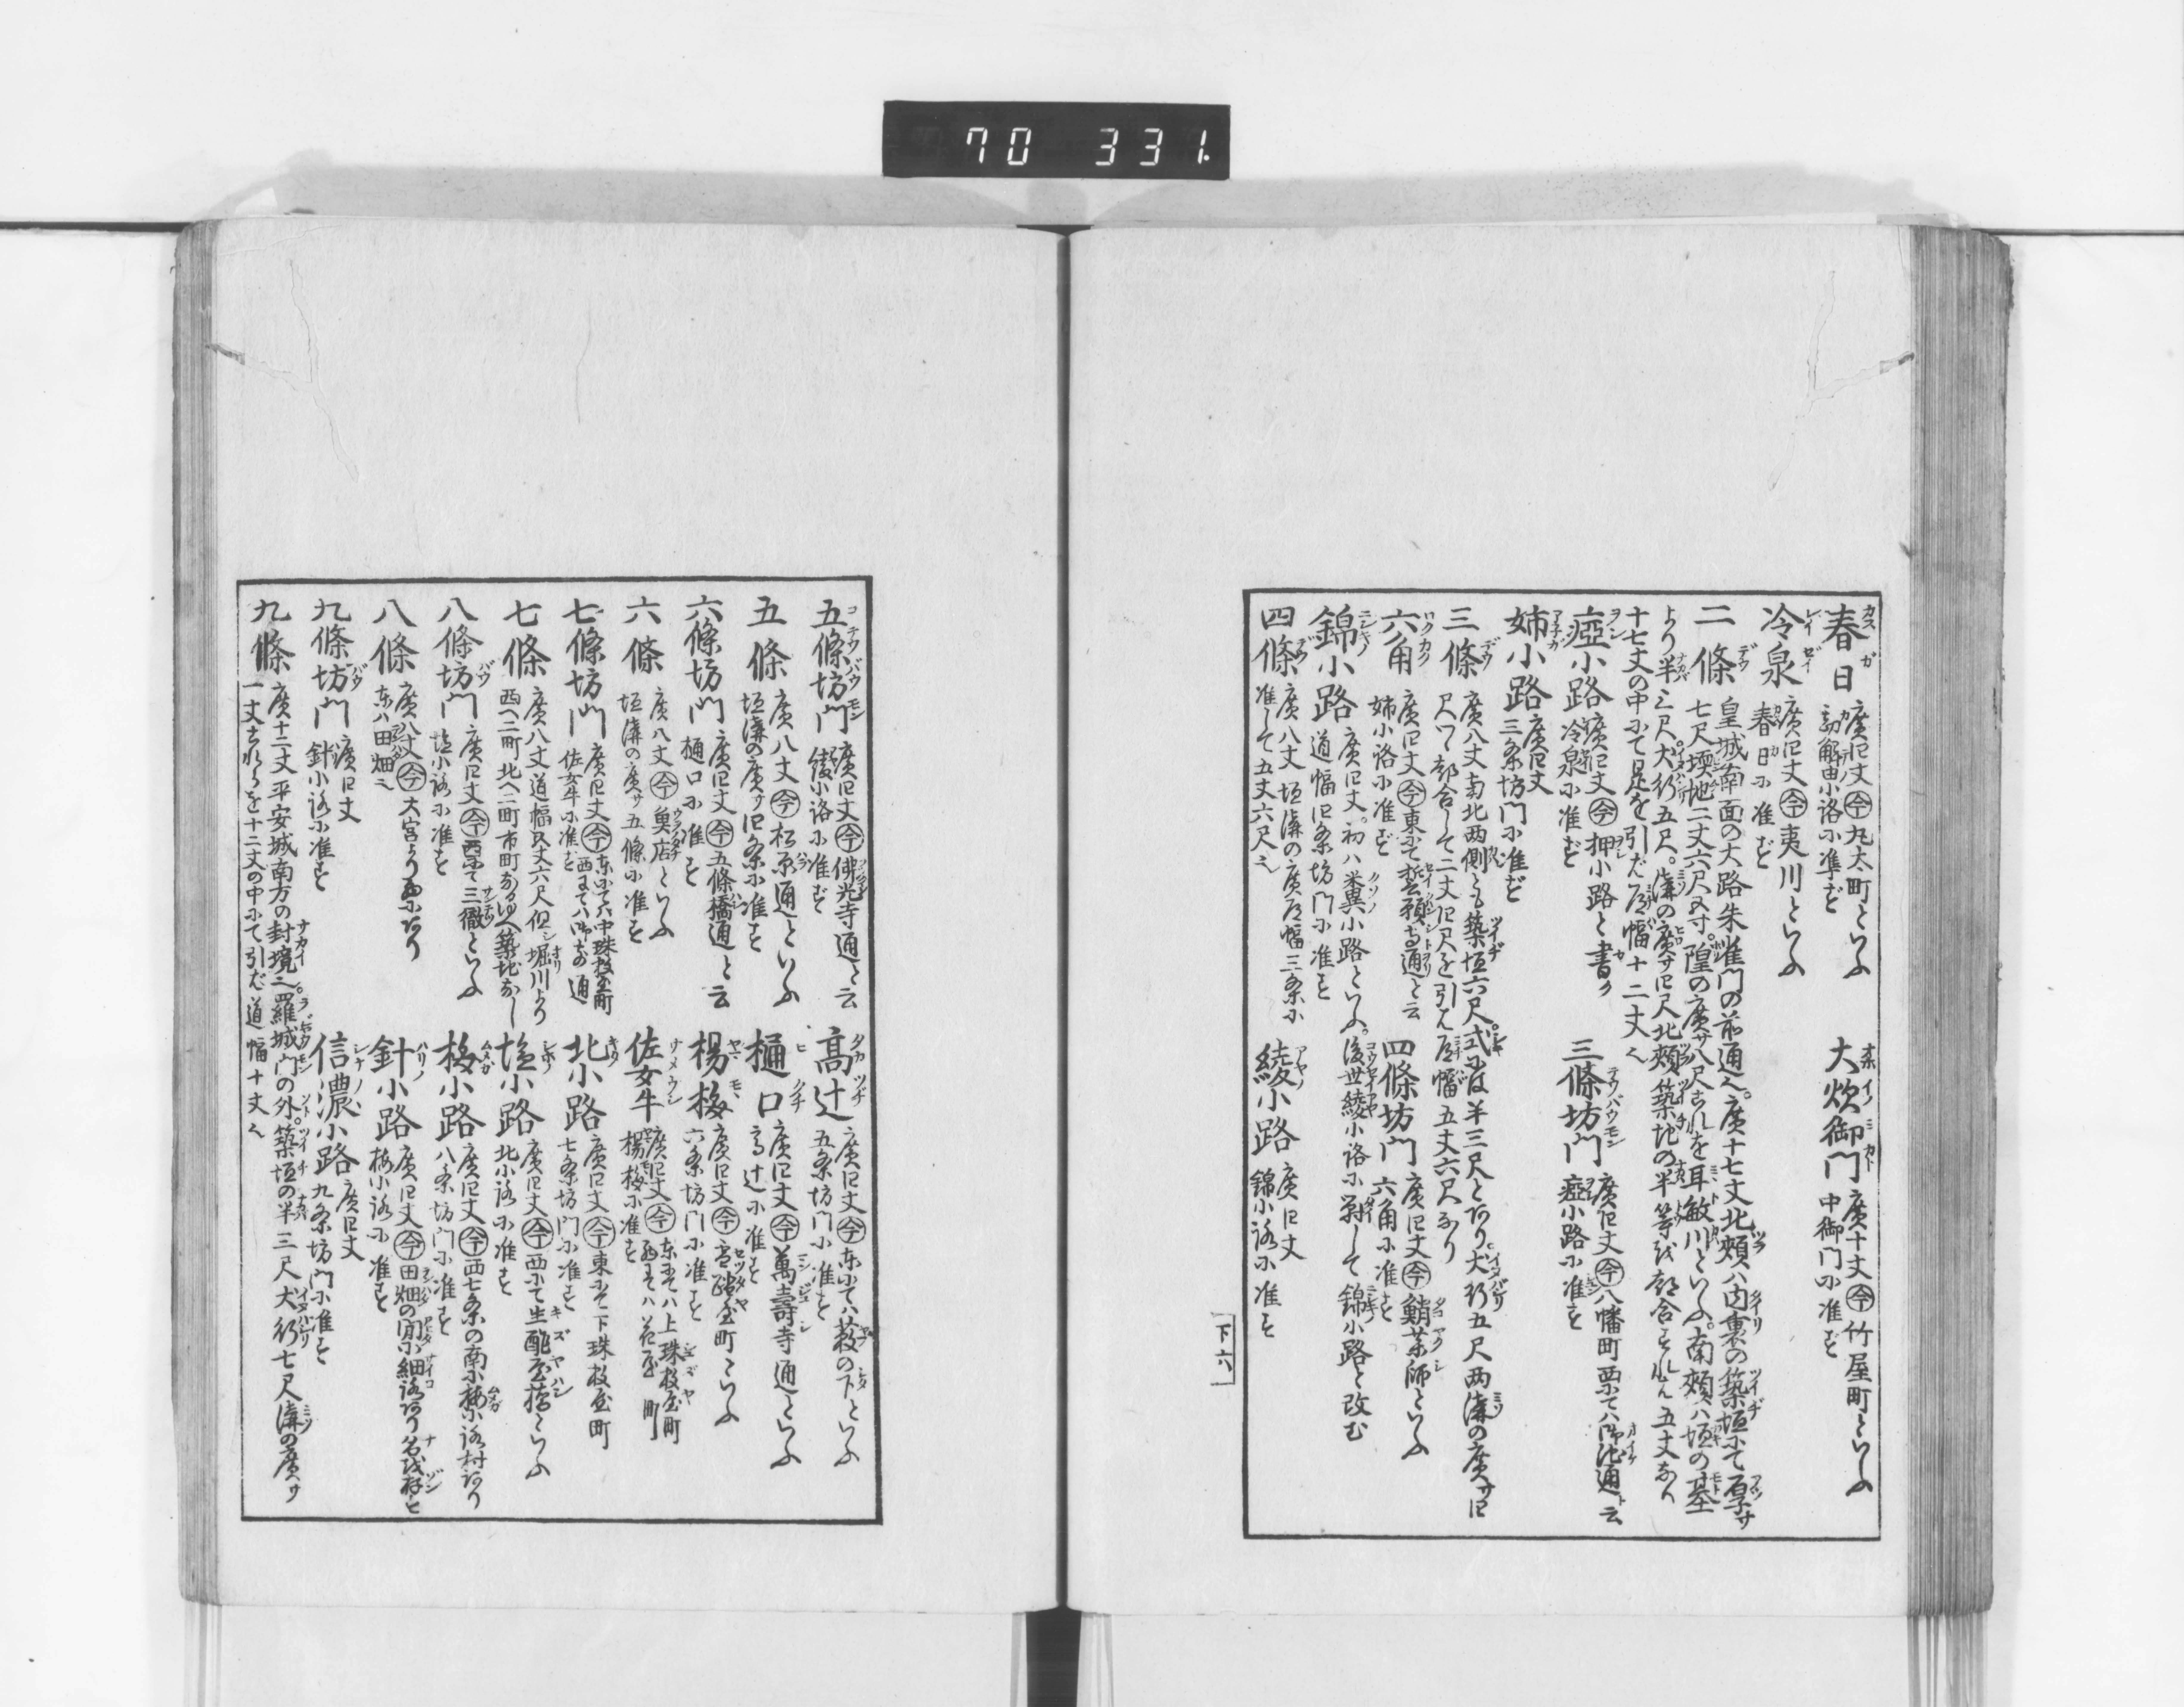 70 331.
春日 廣四丈㊂今 丸太町といふ
勘解由小路に準ず
大炊御門 廣十丈 今 竹屋町といふ
中御門に准ず
冷泉 廣四丈 今 夷川といふ
春日に准ず
二條 皇城南面の大路朱雀門の前通也。廣十七丈北頬ハ内裏の築垣にて厚サ
七尺壖地二丈六尺五寸。隍の廣サ八尺これを耳敏川といふ。南頬ハ垣の基
より半三尺犬行五尺。溝の廣サ四尺北頬築地の半等を都合すれば五丈なり
十七丈の中にて是を引ば道幅十二丈也
瘂小路 廣四丈 今 押小路と書ク
冷泉に准ず
三條坊門 廣四丈 今 八幡町 西にてハ御池通ト云
瘂小路に准ず
姉小路 廣四丈
三条坊門に准ず
三條 廣八丈南北両側とも築垣六尺。式には半三尺とあり。犬行五尺両溝の廣サ四
尺ツヽ都合して二丈四尺を引ハ道幅五丈六尺なり
六角 廣四丈 今 東にて誓願寺通と云
姉小路に准ず
四條坊門 廣四丈 今 鮹薬師といふ
六角に准ず
錦小路 廣四丈。初ハ糞小路といふ。後世綾小路に對して錦小路と改む
道幅四条坊門に准ず
四條 廣八丈 垣溝の廣道幅三条に
准して五丈六尺也
綾小路 廣四丈
錦小路に准ず
下六
五條坊門 廣四丈 今 佛光寺通と云
綾小路に准ず
高辻 廣四丈 今 東にてハ藪の下といふ
五条坊門に准ず
五條 廣八丈 今 松原通といふ
垣溝の廣サ四条に准ず
樋口 廣四丈 今 萬壽寺通といふ
高辻に准ず
六條坊門 廣四丈 今 五條橋通と云
樋口に准ず
楊梅 廣四丈 今 雪踏屋町といふ
六条坊門に准ず
六條 廣八丈 今 魚店といふ
垣溝の廣サ五條に准ず
佐女牛 廣四丈 今 東にてハ上珠数屋町
楊梅に准ず 西にてハ花屋町
七條坊門 廣四丈 今 東にてハ中珠数屋町
佐女牛に准ず 西にてハ御前通
北小路 廣四丈 今 東にて下珠数屋町
七条坊門に准ず
七條 廣八丈道幅五丈六尺但シ堀川より
西へ二町北へ二町市町なるゆへ築地なし
塩小路 廣四丈 今 西にて生酢屋橋といふ
北小路に准ず
八條坊門 廣四丈 今 西にて三徹といふ
塩小路に准ず
梅小路 廣四丈 今 西七条の南に梅小路村あり
八条坊門に准ず
八條 廣八丈 今 大宮より西にあり
東ハ田畑也
針小路 廣四丈 今 田畑の間に細路あり名を存ヒ
梅小路に准ず
九條坊門 廣四丈
針小路に准ず
信濃小路 廣四丈
九条坊門に准ず
九條 廣十二丈平安城南方の封境也。羅城門の外。築垣の半三尺犬行七尺溝の廣サ
一丈これらを十二丈の中にて引ば道幅十丈也